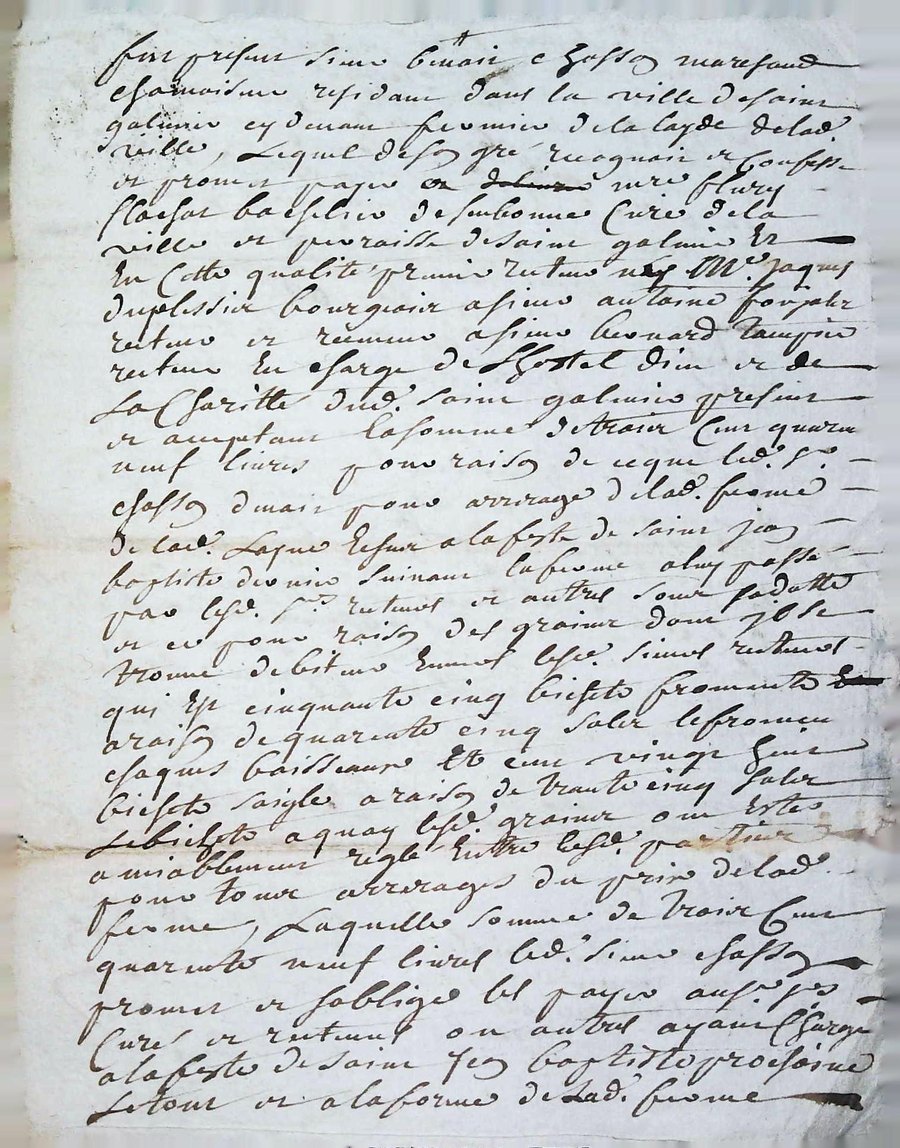 fut present sieur benoit chasson marchand
chamoiseur residant dans la ville de saint
galmier cy devant fermier de la layde de lad.
ville, Lequel de son gré recognoit et confesse
et promet payer mre fleury
flachat bachelier de sorbonne Curé de la
ville et parroisse de saint galmier Et
En Cette qualité premier recteur Me. Jaques
duplessix bourgeois a sieur antoine
recteur et a sieur bernard
recteur En charge de Lhostel dieu et de
La Charitté dud. saint galmier present
et acceptant La somme de trois Cent quarente
neuf livres pour raison de ce que led. sr.
chasson devoit pour arrerage de lad. ferme
de lad. a la feste de saint jean
baptiste dernier suivant la ferme a luy passé
par lesd. srs. recteurs et autres sous sa datte
et ce pour raison des grains dont il se
trouve debiteur Envers lesd. sieurs recteurs
qui Est cinquante cinq bichets froment
a raison de quarente cinq solz le froment
chaques boisseaux Et cent vingt huit
bichets saigle a raison de trante cinq solz
Le bichets a quoy lesd. grains ont Esté
amiablement reglé Entre lesd. parties
pour tous arrerages du prix de lad.
ferme, Laquelle somme de trois Cent
quarente neuf livres led. sieur chasson
promet et soblige les payer ausd. srs
Curé et recteurs ou autres ayant Charge
a la feste de saint Jean baptiste prochaine
Le tout et a la forme de Lad. ferme